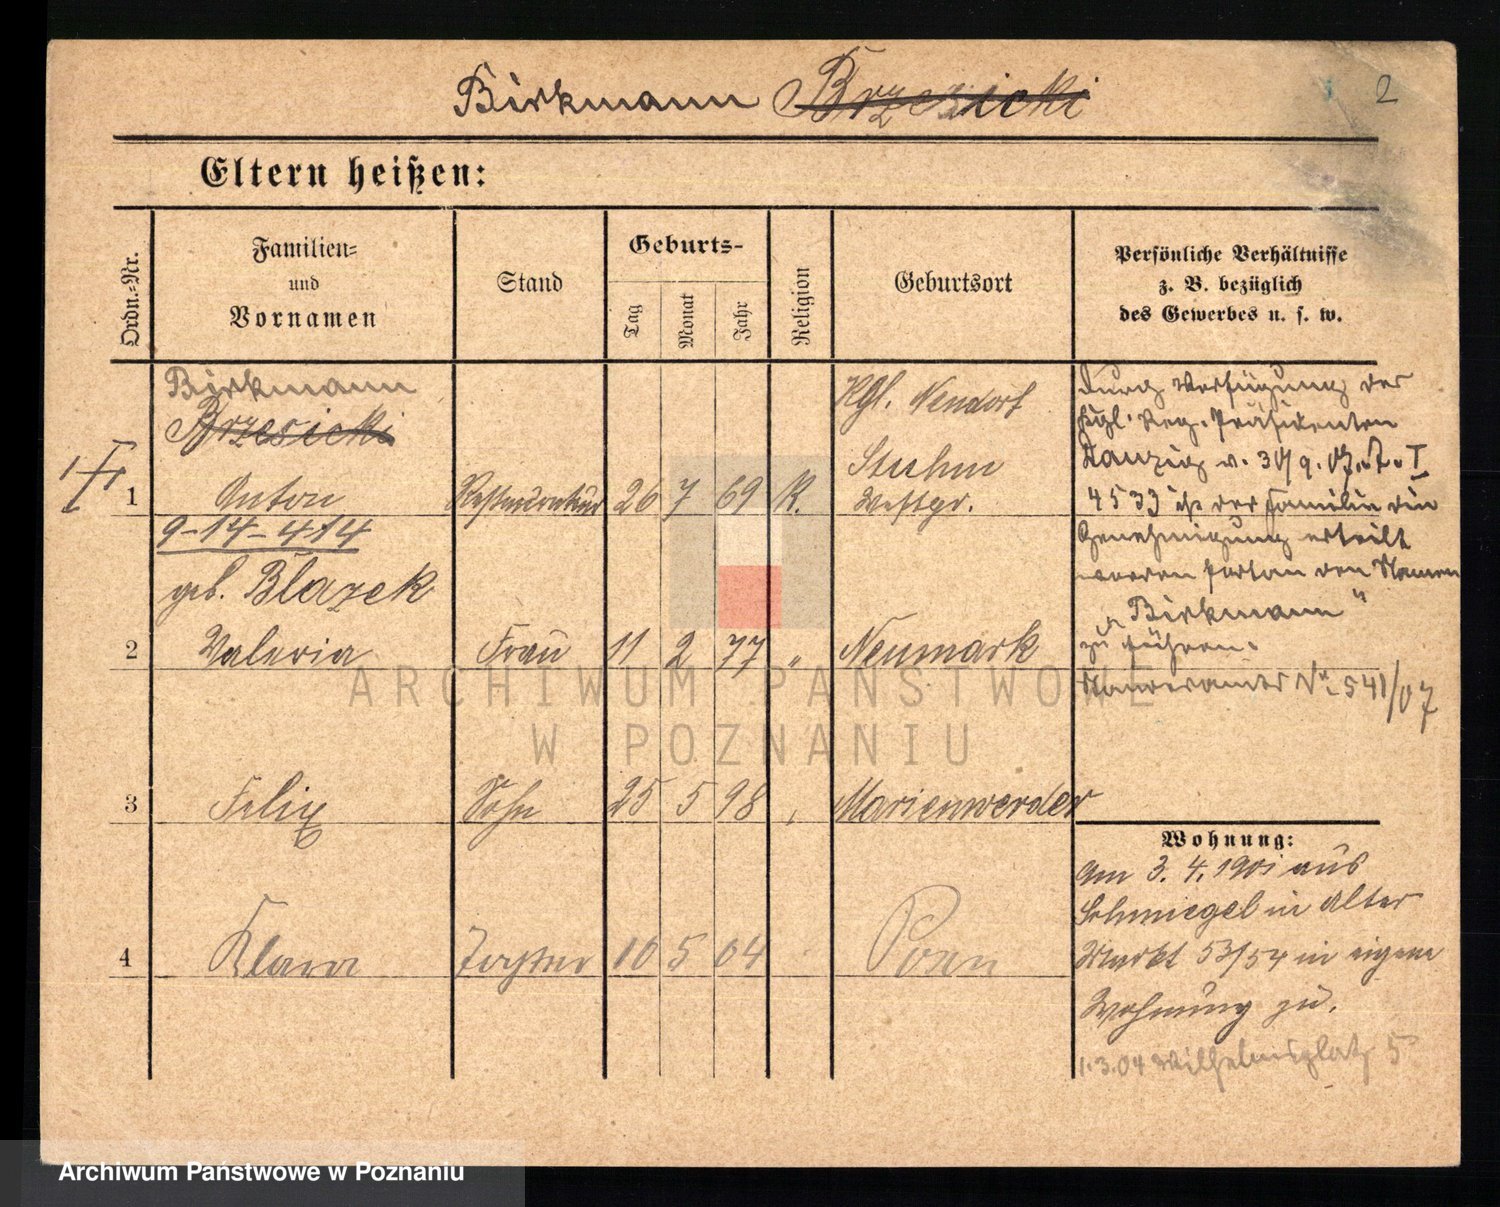 Birkmann Brzezicki
2
Eltern heißen:
Ordn.-Nr.
Familien-
und
Vornamen
Stand
Geburts-
Tag
Monat
Jahr
Religion
Geburtsort
Persönliche Verhältnisse
z. B. bezüglich
des Gewerbes u. s. w.
Birkmann
Brzesicki
1 Anton Restaurateur 26 7 69 K. Kgl. Neudorf
Stuhm
Westpr.
9-14-414
geb. Blazek
2 Valeria Frau 11 2 77 " Neumark
3 Felix Sohn 25 5 98 Marienwerder
4 Klara Tochter 10 5 04 Posen
Durch Verfügung des
Kgl. Reg. Präsidenten
Danzig v. 30/9.07. I
4533 ist der Familie die
Genehmigung erteilt
worden fortan den Namen
„Birkmann“
zu führen.
No 541/07
Wohnung:
Am 3.4.1901 aus
Schmiegel in Alter
Markt 53/54 in eigene
Wohnung zu.
1.3.04 Wilhelmsplatz 5
ARCHIWUM PAŃSTWOWE
W POZNANIU
Archiwum Państwowe w Poznaniu